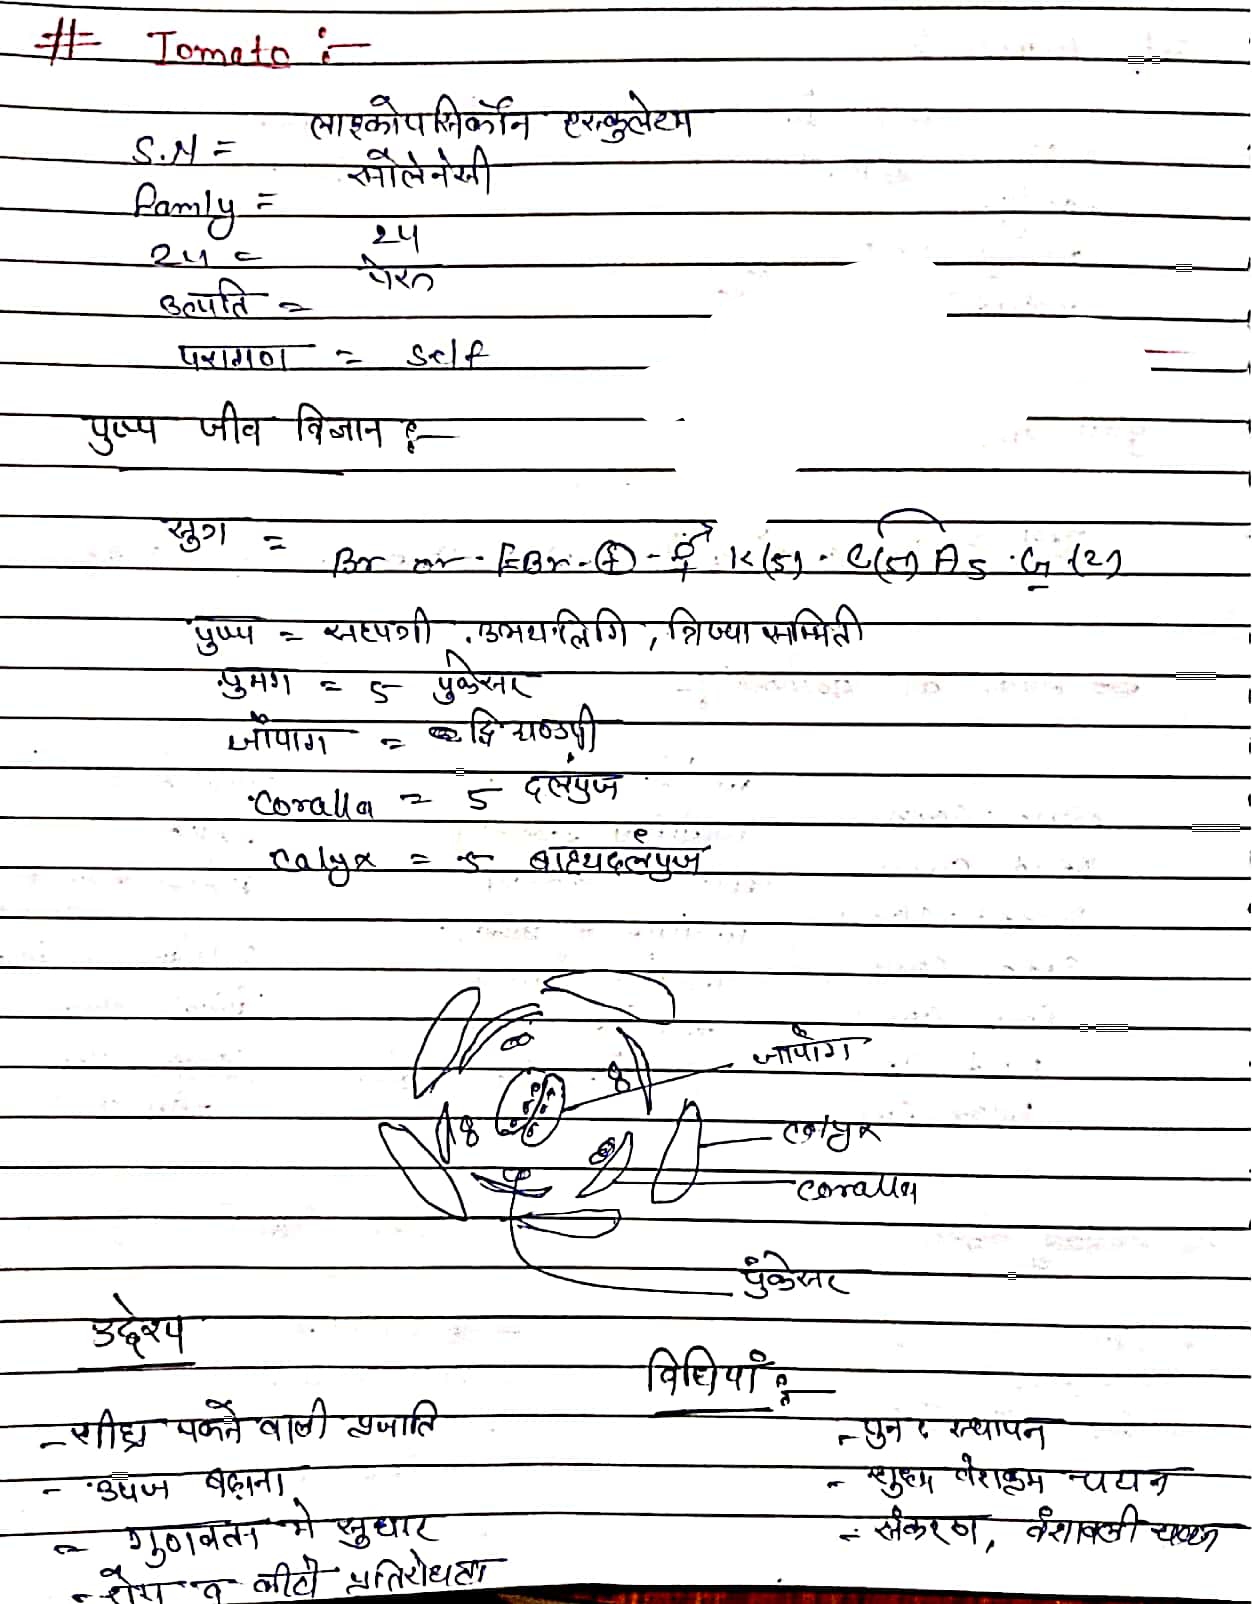 # Tomato :-
S.N = लाइकोपर्सिकोन एस्कुलेटम
Family = सोलेनेसी
24 = 24
उत्पति = पेरू
परागण = Self
पुष्प जीव विज्ञान :-
सुत्र = Br or EBr ⊕ ⚥ K(5) C(5) A5 G(2)
पुष्प = सहपत्री, उभयलिंगि, त्रिज्या सममिती
पुमंग = 5 पुंकेसर
जॉयांग = द्वि अण्डपी
Coralla = 5 दलपुंज
Calyx = 5 बाह्यदलपुंज
जॉयांग
Calyx
Coralla
पुंकेसर
उद्देश्य
विधियाँ :-
- शीघ्र पकने वाली प्रजाति
- पुनः स्थापन
- उपज बढ़ाना
- शुद्ध वंशक्रम चयन
- गुणवता मे सुधार
- संकरण, वंशावली चयन
- रोग व कीटो प्रतिरोधता